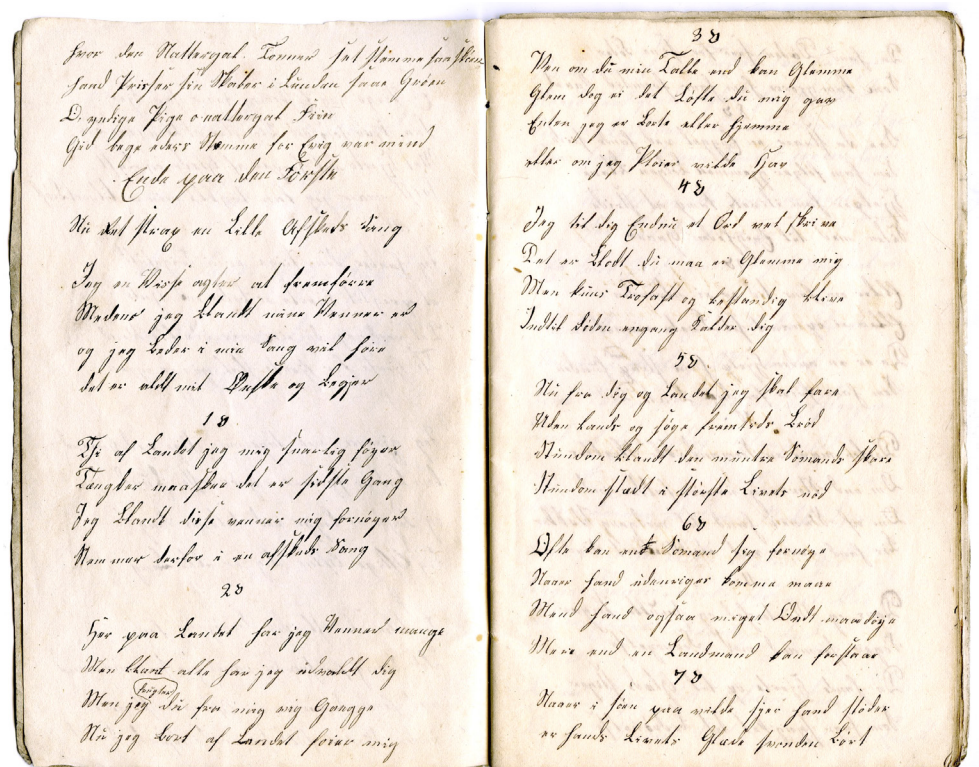 hvor den Nattergal Tonner set stemme saa skiøn
hand Priser sin Skaber i Lunden saae Grøen
O. yndige Pige o nattergal Fiin
Gid bege eders Stemme for Evig var mind
Ende paa den Første
Nu det strax en Lille Afskeds Sang
Jeg en Visse agter at fremførre
Medens jeg blandt mine Venner er
og jeg beder i min Sang vil høre
det er aldt mit Ønske og Begjer
1 8
Thi af Landet jeg mig snarlig føyer
Tængker maaskee det er sidste Gang
Jeg blandt disse venner mig fornøyer
Stemmer derfor i en afskeds Sang
2 8
Her paa Landet har jeg Venner mange
Men blant alle har jeg udvaldt dig
Men jeg du fra mig vig Gangge
frygter
Nu jeg bort af Landet føier mig
3 8
Men om du min Talle end kan Glemme
Glem dog ei det Løfte du mig gav
Enten jeg er borte eller hjemme
eller om jeg Pløier vilde Hav
4 8
Jeg til dig Endnu et Ord vel skrive
Det er blodt du maa ei Glemme mig
Men kuns Trofast og bestandig blive
Indtil døden engang Kalder dig
5 8.
Nu fra dig og Landet jeg skal fare
Uden Lands og søge fremteds Brød
Stundom blandt den muntre Sømands skare
Stundom stædt i største Livets nød
6 8
Ofte kan end Sømand sig fornøye
Naaer hand udenriges komme maae
Mend hand ogsaa meget Ondt maa døye
Mere end en Landmand kan forstaae
7 8
Naaer i søen paa vilde sjer hand støder
er hands Livets Glæde svonden Bort